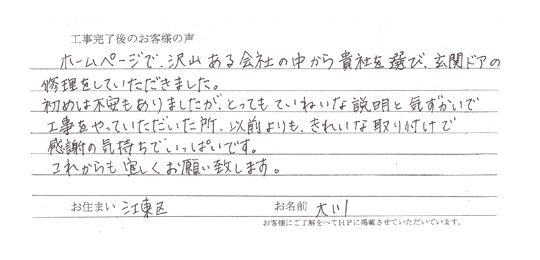 工事完了後のお客様の声
ホームページで、沢山ある会社の中から貴社を選び、玄関ドアの
修理をしていただきました。
初めは不安もありましたが、とってもていねいな説明と気ずかいで
工事をやっていただいた所、以前よりも、きれいな取り付けで
感謝の気持ちでいっぱいです。
これからも宜しくお願い致します。
お住まい 江東区 お名前 大川
お客様にご了解をへてHPに掲載させていただいています。